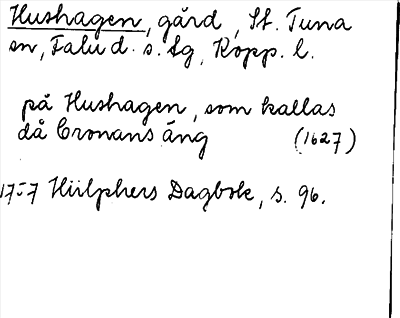 Hushagen, gård, St. Tuna
sn, Falu d. s. lg, Kopp. l.
på Hushagen, som kallas
då Cronans äng (1627)
1757 Hülphers Dagbok, s. 96.